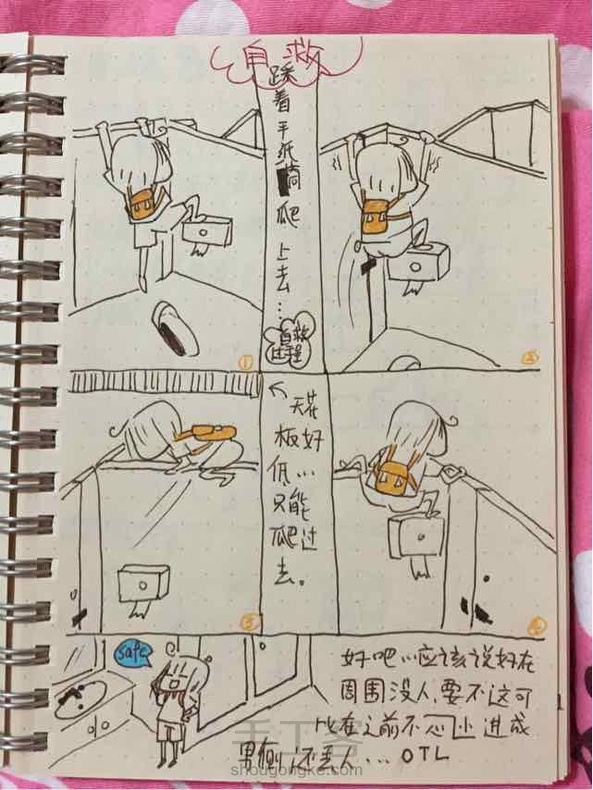 自救
踩着手纸筒爬上去…
自救过程
①
②
天花板好低…只能爬过去。
③
④
safe
好吧…应该说好在
周围没人,要不这可
比在之前不心小进成
男厕还丢人... OTL
手工客
shougongke.com